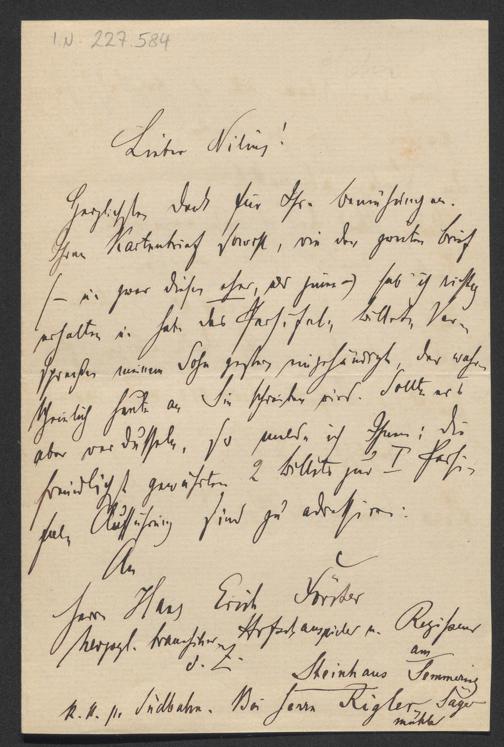 I.N. 227.584
Lieber Nilius!
Herzlichsten Dank für Ihre Bemühungen.
Ihren Kartenbrief sowohl, wie den zweiten Brief
(– u. zwar diesen eher, als jenen –) hab ich richtig
erhalten u. habe das Parsifal-Billett-Ver-
sprechen meinem Sohn gestern eingehändigt, der wahr-
scheinlich heute an Sie schreiben wird. Sollte er's
aber verdusseln, so melde ich Ihnen: die
freundlichst gewährten 2 Billets zur I Parsi-
fal-Aufführung sind zu adressiren:
An
Herrn Hans Erich Förster
herzogl. Hofschauspieler u. Regisseur
d. Z. Steinhaus am Semmering
k. k. p. Südbahn. Bei Herrn Rigler, Säge-
mühle